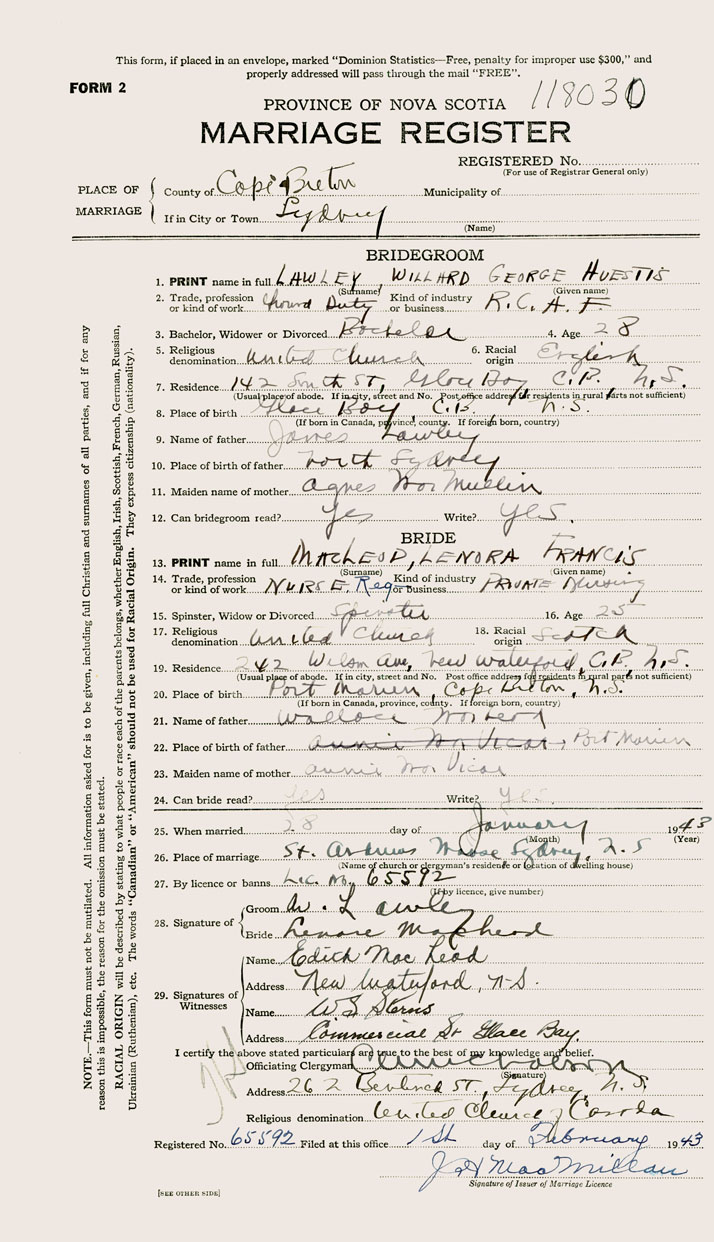 This form, if placed in an envelope, marked “Dominion Statistics—Free, penalty for improper use $300,” and
properly addressed will pass through the mail “FREE”.
FORM 2
118030
PROVINCE OF NOVA SCOTIA
MARRIAGE REGISTER
REGISTERED No.
(For use of Registrar General only)
PLACE OF MARRIAGE
County of Cape Breton Municipality of
If in City or Town Sydney
(Name)
BRIDEGROOM
1. PRINT name in full LAWLEY WILLARD GEORGE HUESTIS
(Surname) (Given name)
2. Trade, profession or kind of work Ground Duty Kind of industry or business R.C.A.F.
3. Bachelor, Widower or Divorced Bachelor 4. Age 28
5. Religious denomination United Church 6. Racial origin English
7. Residence 142 South St, Glace Bay, C.B. N.S.
(Usual place of abode. If in city, street and No. Post office address for residents in rural parts not sufficient)
8. Place of birth Glace Bay, C.B., N.S.
(If born in Canada, province, county. If foreign born, country)
9. Name of father James Lawley
10. Place of birth of father North Sydney
11. Maiden name of mother Agnes MacMullin
12. Can bridegroom read? Yes Write? Yes.
BRIDE
13. PRINT name in full MACLEOD, LENORA FRANCIS
(Surname) (Given name)
14. Trade, profession or kind of work NURSE. Reg Kind of industry or business PRIVATE Nursing
15. Spinster, Widow or Divorced Spinster 16. Age 25
17. Religious denomination United Church 18. Racial origin Scotch
19. Residence 242 Wilson Ave, New Waterford, C.B., N.S.
(Usual place of abode. If in city, street and No. Post office address for residents in rural parts not sufficient)
20. Place of birth Port Morien, Cape Breton, N.S.
(If born in Canada, province, county. If foreign born, country)
21. Name of father Wallace MacLeod
22. Place of birth of father Annie MacVicar, Port Morien
23. Maiden name of mother Annie MacVicar
24. Can bride read? Yes Write? Yes.
25. When married 28 day of January 1943
(Month) (Year)
26. Place of marriage St. Andrews Manse Sydney, N.S
(Name of church or clergyman's residence or location of dwelling house)
27. By licence or banns Lic. No. 65592
(If by licence, give number)
28. Signature of
Groom W. Lawley
Bride Lenore MacLeod
29. Signatures of Witnesses
Name Edith MacLeod
Address New Waterford, N-S.
Name W S Sterns
Address Commercial St Glace Bay.
I certify the above stated particulars are true to the best of my knowledge and belief.
Officiating Clergyman
(Signature)
Address 262 St, Sydney, N.S.
Religious denomination United Church of Canada
Registered No. 65592 Filed at this office 1st day of February 1943
J H MacMillan
Signature of Issuer of Marriage Licence
[SEE OTHER SIDE]
NOTE.—This form must not be mutilated. All information asked for is to be given, including full Christian and surnames of all parties, and if for any
reason this is impossible, the reason for the omission must be stated.
RACIAL ORIGIN will be described by stating to what people or race each of the parents belongs, whether English, Irish, Scottish, French, German, Russian,
Ukrainian (Ruthenian), etc. The words “Canadian” or “American” should not be used for Racial Origin. They express citizenship (nationality).